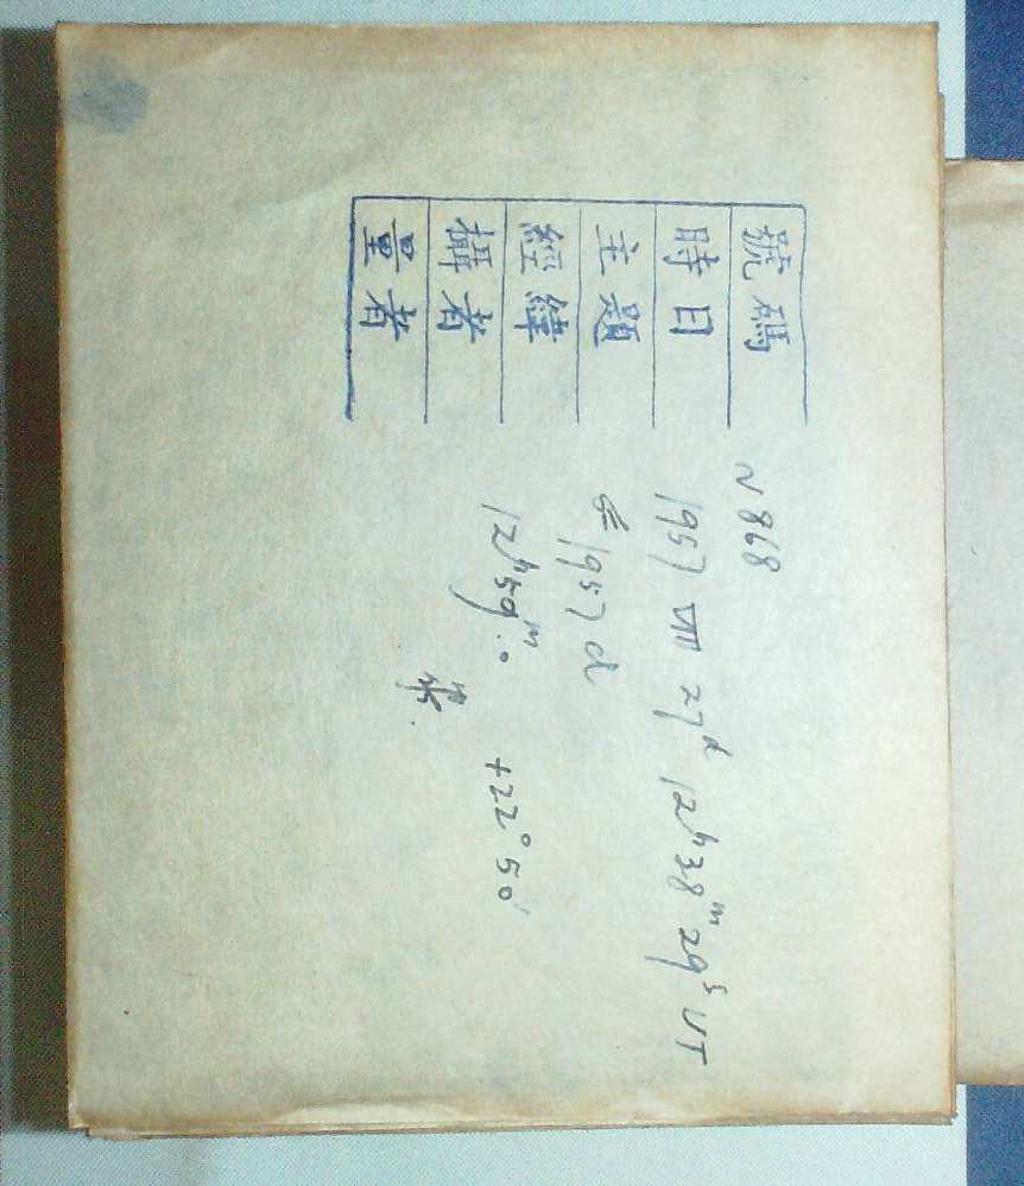 號碼 N 868
時日 1957 VII 27ᵈ 12ʰ38ᵐ29ˢ UT
主題 1957 d
經緯 12ʰ59ᵐ.0 +22°50′
攝者
量者